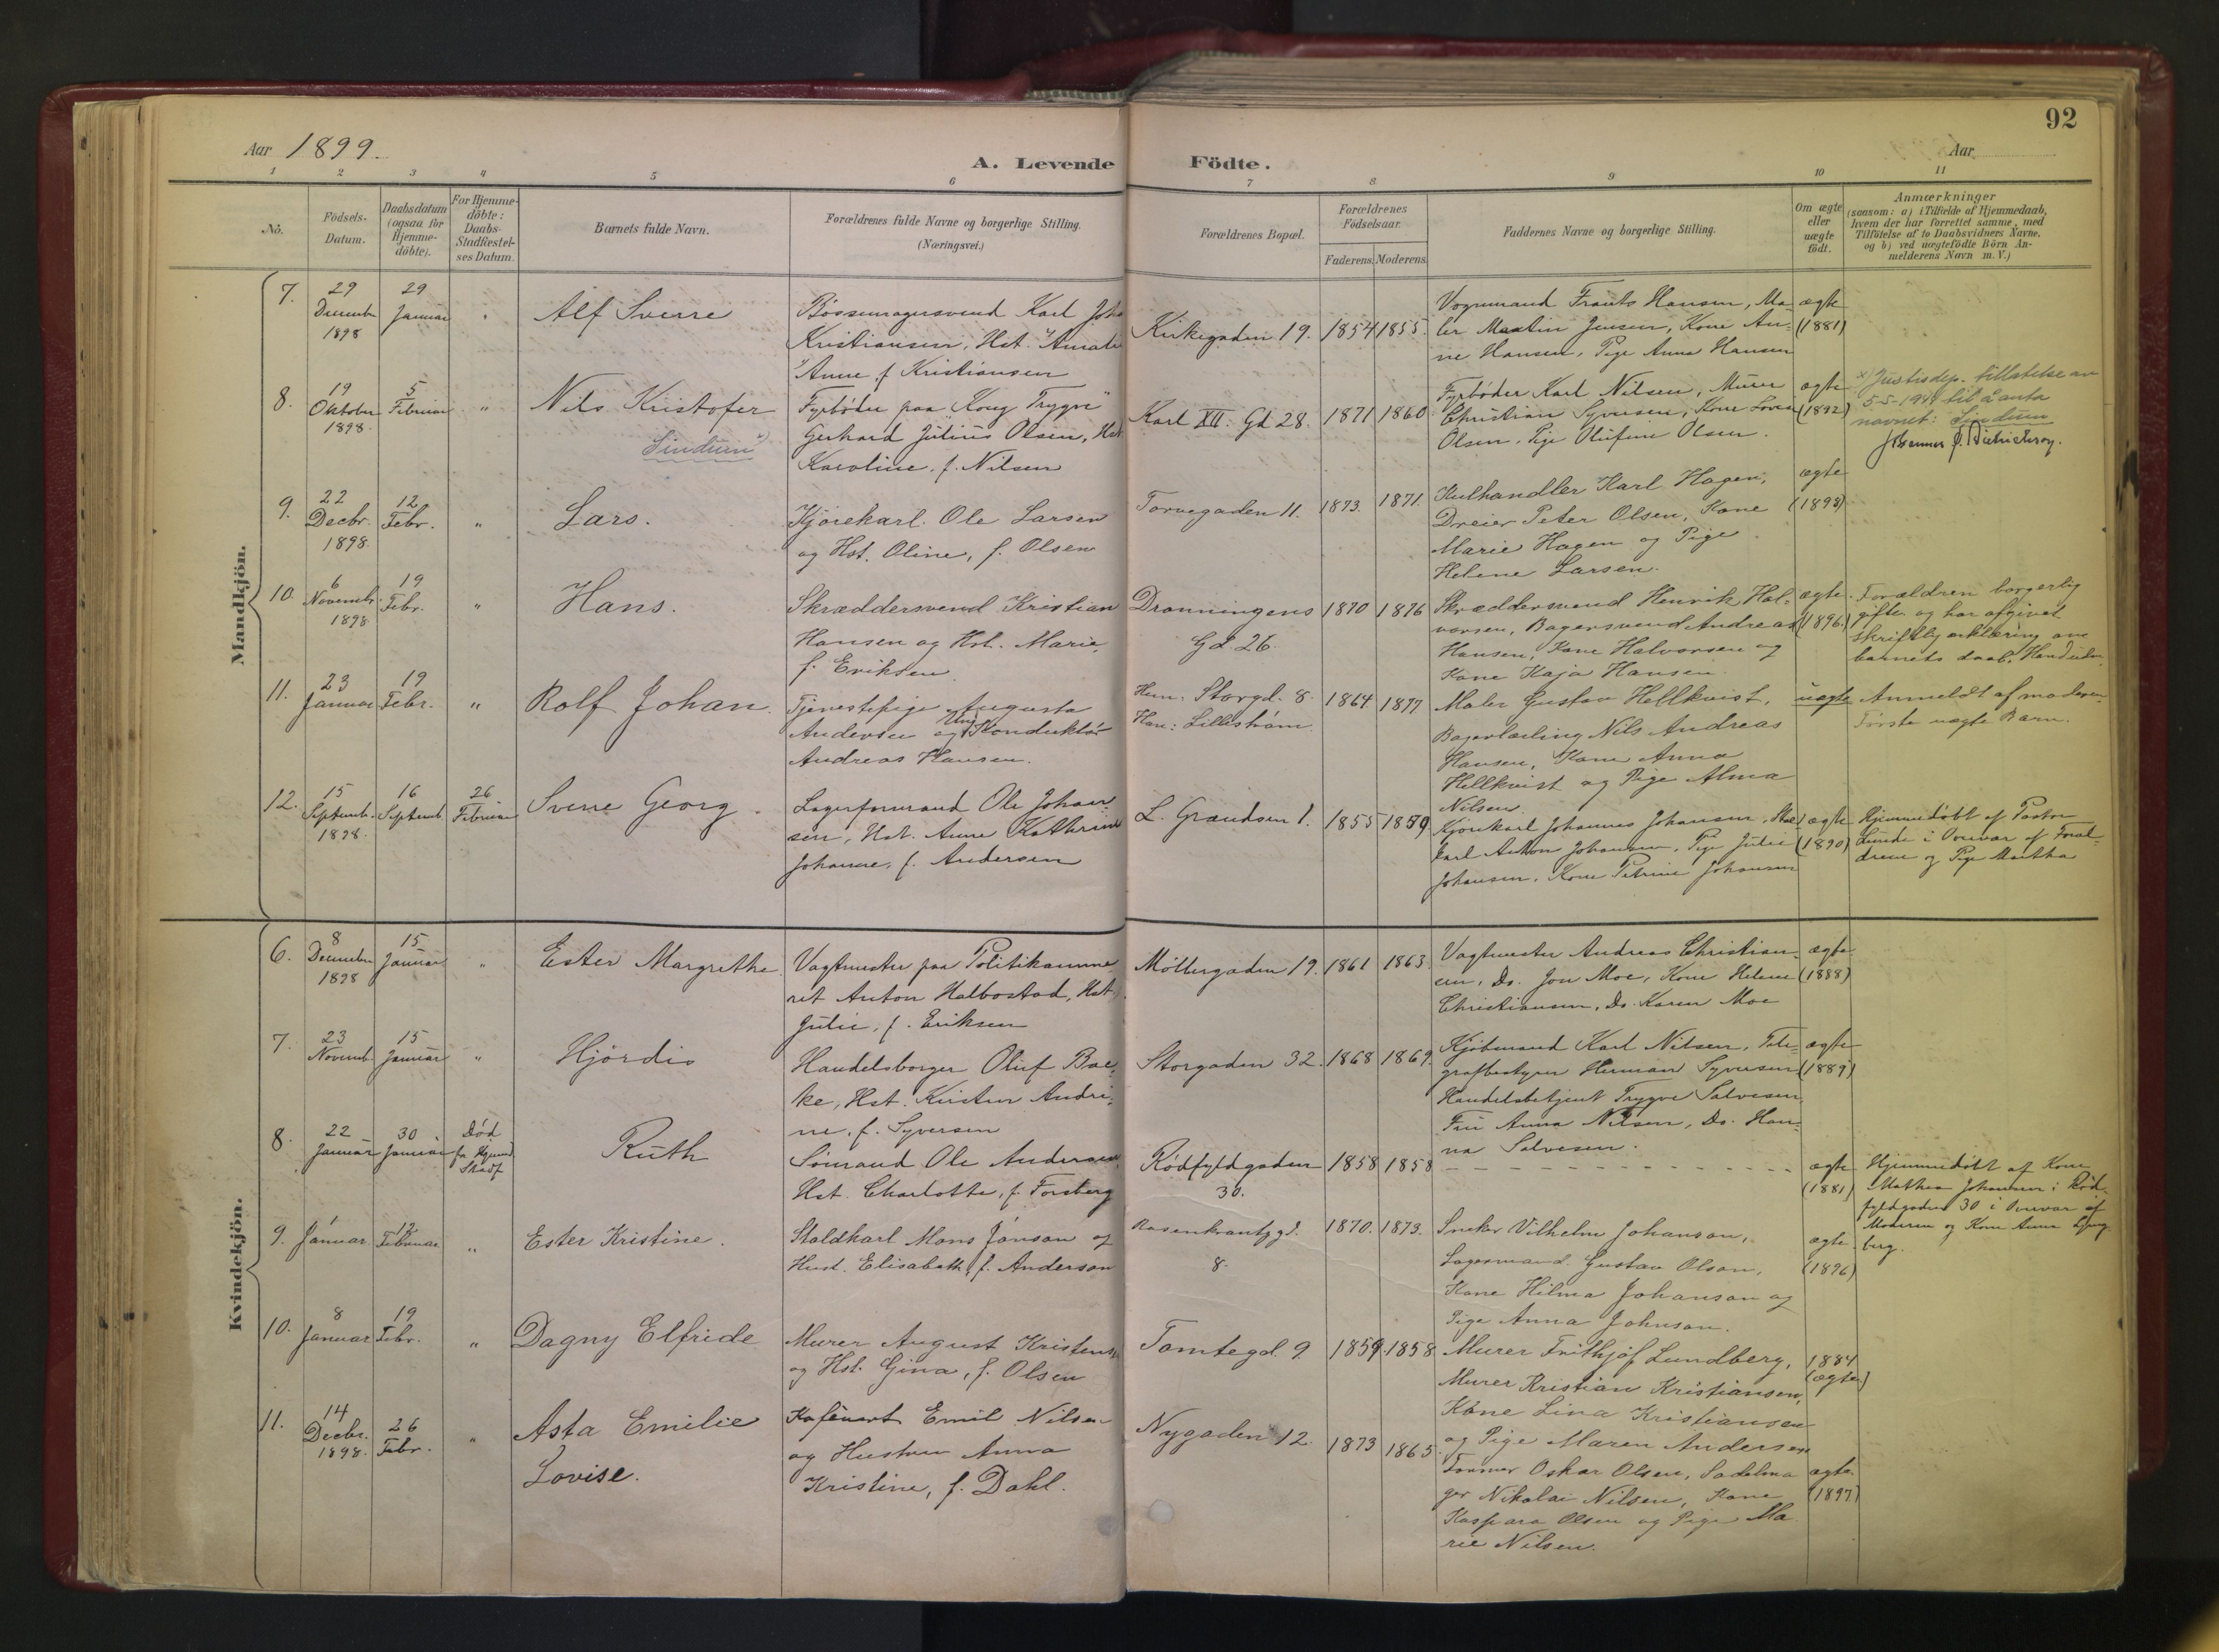 92
Aar 1899.
A. Levende Födte.
Aar
1 2 3 4 5 6 7 8 9 10 11
No.
Födsels-
Datum.
Daabsdatum
(ogsaa for
Hjemme-
döbte).
For Hjemme-
döbte:
Daabs-
Stadfæstel-
ses Datum.
Barnets fulde Navn.
Forældrenes fulde Navne og borgerlige Stilling.
(Næringsvei.)
Forældrenes Bopæl.
Forældrenes
Födselsaar.
Faderens. Moderens.
Faddernes Navne og borgerlige Stilling.
Om ægte
eller
uægte
födt.
Anmærkninger
(saasom: a) i Tilfælde af Hjemmedaab,
hvem der har forrettet samme, med
Tilföielse af to Daabsvidners Navne,
og b) ved uægtefödte Börn An-
melderens Navn m. V.)
Mandkjön.
7.
29
Decembr
1898
29
Januar
"
Alf Sverre
Bøssemagersvend Karl Joh
Kristiansen, Hst. Amalie
Anne f. Kristiansen
Kirkegaden 19.
1854
1855.
Vognmand Frants Hansen, Ma-
ler Martin Jensen, Kone An-
ne Hansen, Pige Anna Hansen
ægte
(1881)
8.
19
Oktober
1898.
5
Februar
"
Nils Kristofer
Sindum x)
Fyrbøder paa "Kong Trygve"
Gerhard Julius Olsen, Hst
Karoline, f. Nilsen
Karl XII. Gd 28.
1871
1860
Fyrbøder Karl Nilsen, Murer
Christian Syversen, Kone Lovise
Olsen, Pige Olufine Olsen.
ægte
(1892)
x) Justisdep. tillatelse av
5-5-1944 til å anta
navnet: Sindum
9.
22
Decbr.
1898.
12
Febr.
"
Lars.
Kjørekarl Ole Larsen
og Hst. Oline, f. Olsen
Torvegaden 11.
1873.
1871.
Kulhandler Karl Hagen,
Dreier Peter Olsen, Kone
Marie Hagen og Pige
Helene Larsen.
ægte
(1898)
10.
6
Novembr.
1898
19
Febr.
"
Hans.
Skræddersvend Kristian
Hansen og Hst. Marie,
f. Eriksen
Dronningens
Gd. 26.
1870
1876
Skræddersvend Henrik Hal-
vorsen, Bagersvend Andreas
Hansen, Kone Halvorsen og
Kone Kaja Hansen.
ægte.
(1896.)
Forældren borgerlig
gifte og har afgivet
skriftlig erklæring om
barnets daab.
11.
23
Januar
19
Febr.
"
Rolf Johan.
Tjenestepige Augusta
Andersen og Ung. Konduktør
Andreas Hansen.
Hun: Storgd. 8.
Han: Lillestrøm.
1864
1877.
Maler Gustav Hellkvist,
Bagerlærling Nils Andreas
Hansen, Kone Anna
Hellkvist og Pige Alma
Nilsen.
uægte
Anmeldt af moderen
Første uægte Barn.
12.
15
Septemb.
1898.
16
Septemb.
26
Februar
Sverre Georg.
Lagerformand Ole Johan-
sen, Hst. Anne Kathrine
Johanne, f. Andersen
L. Grændsen 1.
1855
1859
Kjørekarl Johannes Johansen,
karl Anton Johansen, Pige Julie
Johansen, Kone Petrine Johansen
ægte
(1890)
Hjemmedøbt af Pastor
Lunde i Overvær af Foræl-
drene og Pige Martha
Kvindekjön.
6.
8
December
1898
15
Januar
"
Ester Margrethe
Vagtmester paa Politikamme-
ret Anton Halbostad, Hst.
Julie, f. Eriksen
Møllergaden 19.
1861
1863
Vagtmester Andreas Christian-
sen, Do. Jon Moe, Kone Helene
Christiansen, Do. Karen Moe
ægte
(1888)
7.
23
Novemb.
15
Januar
"
Hjørdis
Handelsborger Oluf Bae-
ke, Hst. Kirsten Andri-
ne, f. Syversen
Storgaden 32.
1868
1869.
Kjøbmand Karl Nilsen, Tele-
grafbestyrer Herman Syversen
Handelsbetjent Trygve Salvesen,
Fru Anna Nilsen, Do. Han-
na Salvesen.
ægte
(1889)
8.
22
Januar
30
Januar
Død
før Hjemd.
Stadf
Ruth
Sømand Ole Andersen,
Hst. Charlotte, f. Forsberg
Rødfyldgaden
30.
1858
1858
ægte
(1881)
Hjemmedøbt af Kone
Mathea Johansen i Rød-
fyldgaden 30 i Overvær af
Moderen og Kone Anna Ljung-
berg.
9.
1
Januar.
12
Februar.
"
Ester Kristine.
Staldkarl Mons Jönson og
Hust. Elisabeth, f. Anderson
Rosenkrantzgd.
8.
1870.
1873.
Snekr Vilhelm Johanson,
Lagermand Gustav Olson,
Kone Hilma Johanson og
Pige Anna Johnson.
ægte.
(1896)
10.
8
Januar
19
Febr.
"
Dagny Elfride
Murer August Kristens
og Hst. Gina, f. Olsen
Tomtegd. 9.
1859
1858
Murer Frithjof Lundberg,
Murer Kristian Kristiansen,
Kone Lina Kristiansen
og Pige Maren Andersen
1884
(ægte)
11.
14
Decbr.
1898.
26
Febr.
"
Asta Emilie
Lovise.
Kafévert Emil Nilsen
og Hustru Anna
Kristine, f. Dahl.
Nygaden 12.
1873
1865.
Former Oskar Olsen, Sadelma-
ger Nikolai Nilsen, Kone
Kaspara Olsen og Pige Ma-
rie Nilsen.
ægte.
(1897)